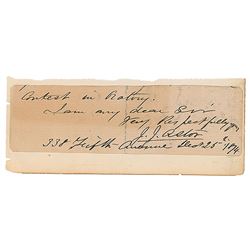 Contest in Oratory.
I am my dear Sir
Very Respectfully
J. J. Astor
338 Fifth Avenue Dec 25